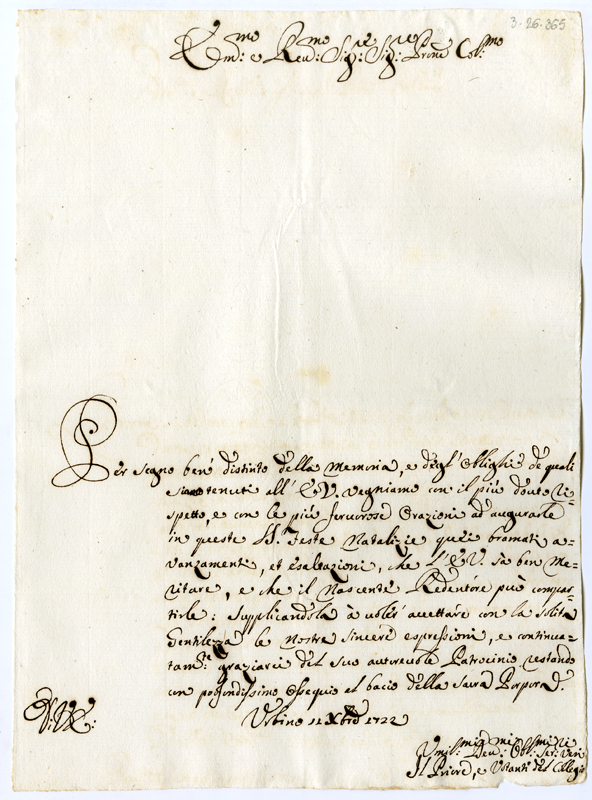 3-26-365
Em:mo e Reu:mo Sig:re Sig:re Prone Col:mo
Per segno ben distinto della memoria, e degl'Oblighi de quali
siamo tenuti all' E.V. vegniamo con il più douto ri-
spetto, e con le più feruorose Orazioni ad augurarle
in queste SS. Feste Natalizie quei bramati a-
vanzamenti, et esaltazioni, che l'E.V. sà ben me-
ritare, e che il Nascente Redentore può compar-
tirle: supplicandola à voler accettare con la solita
Gentilezza le nostre sincere espressioni, e continua-
tam:te graziarci del suo autoreuole Patrocinio restando
con profondissimo Ossequio al bacio della Sacra Porpora.
D.V.E:
Urbino 11 Xbre 1722
Umil:mi Deu:mi Obl:mi Ser:ri Veri
Il Priore, e Votanti del Collegio